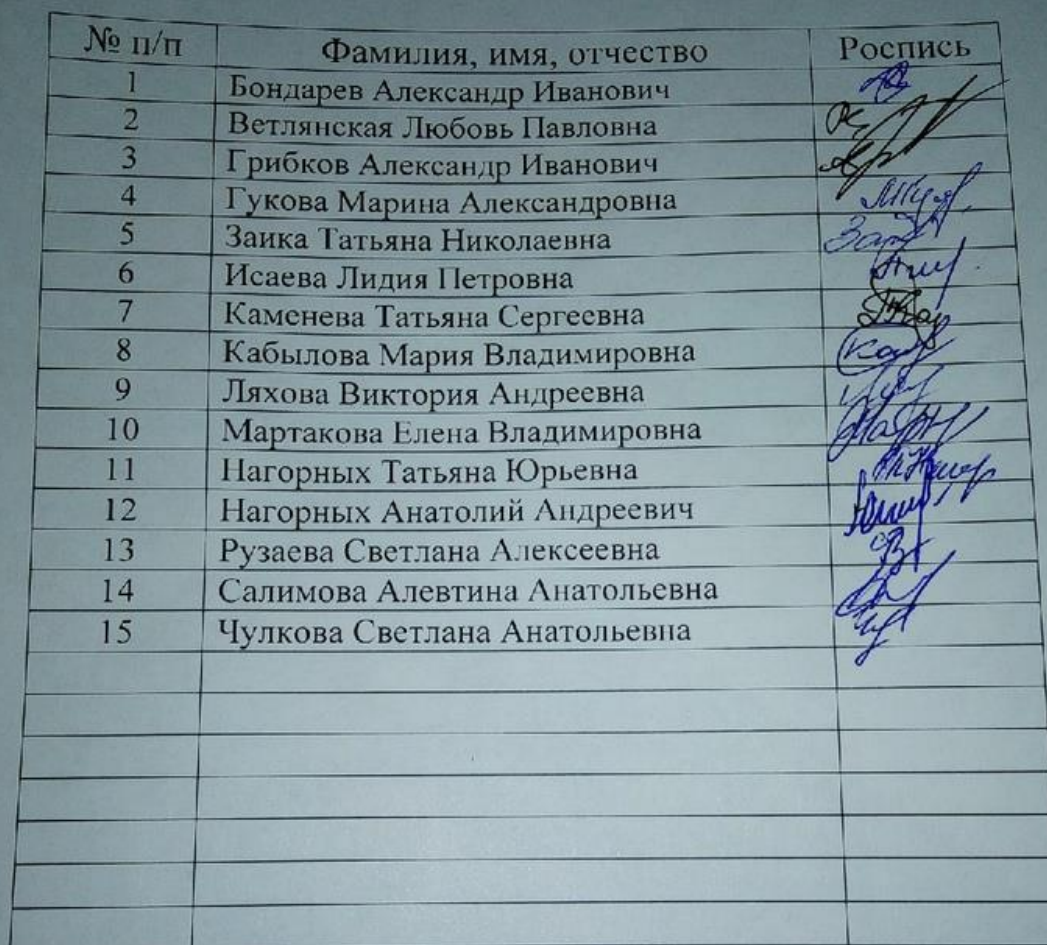 № п/п Фамилия, имя, отчество Роспись
1 Бондарев Александр Иванович
2 Ветлянская Любовь Павловна
3 Грибков Александр Иванович
4 Гукова Марина Александровна
5 Заика Татьяна Николаевна
6 Исаева Лидия Петровна
7 Каменева Татьяна Сергеевна
8 Кабылова Мария Владимировна
9 Ляхова Виктория Андреевна
10 Мартакова Елена Владимировна
11 Нагорных Татьяна Юрьевна
12 Нагорных Анатолий Андреевич
13 Рузаева Светлана Алексеевна
14 Салимова Алевтина Анатольевна
15 Чулкова Светлана Анатольевна